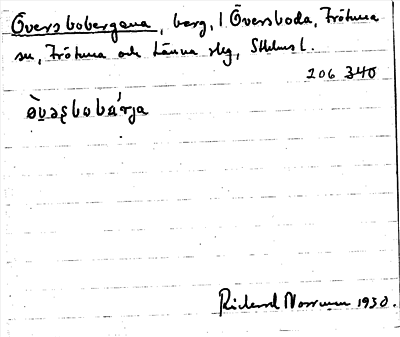 Översbobergena, berg, i Översboda, Frötuna
sn, Frötuna och Länna slg, Sthlms l.
206 340
Rickard Norrman 1930.